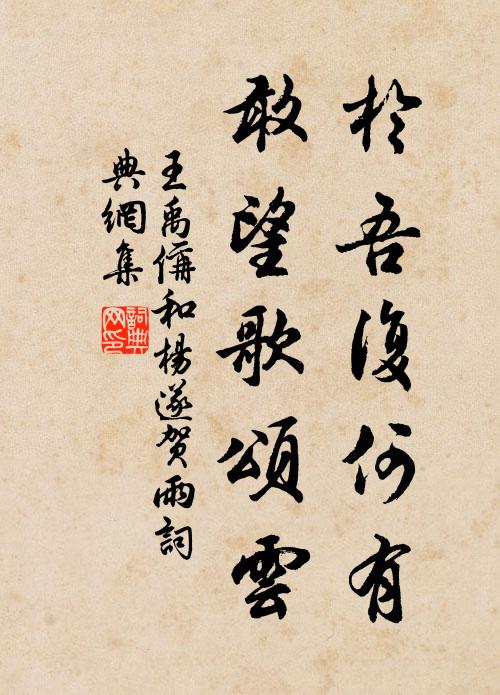 於吾復何有
敢望歌頌雲
王禹偁和楊遂贺雨詞
典網集
詞典网印